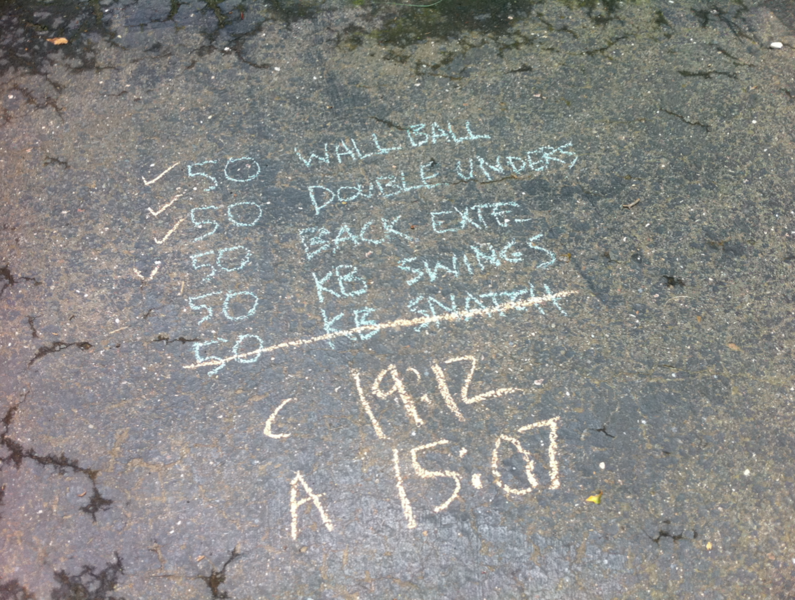 50 WALL BALL
50 DOUBLE UNDERS
50 BACK EXTE
50 KB SWINGS
50 KB SNATCH
C 19:12
A 15:07